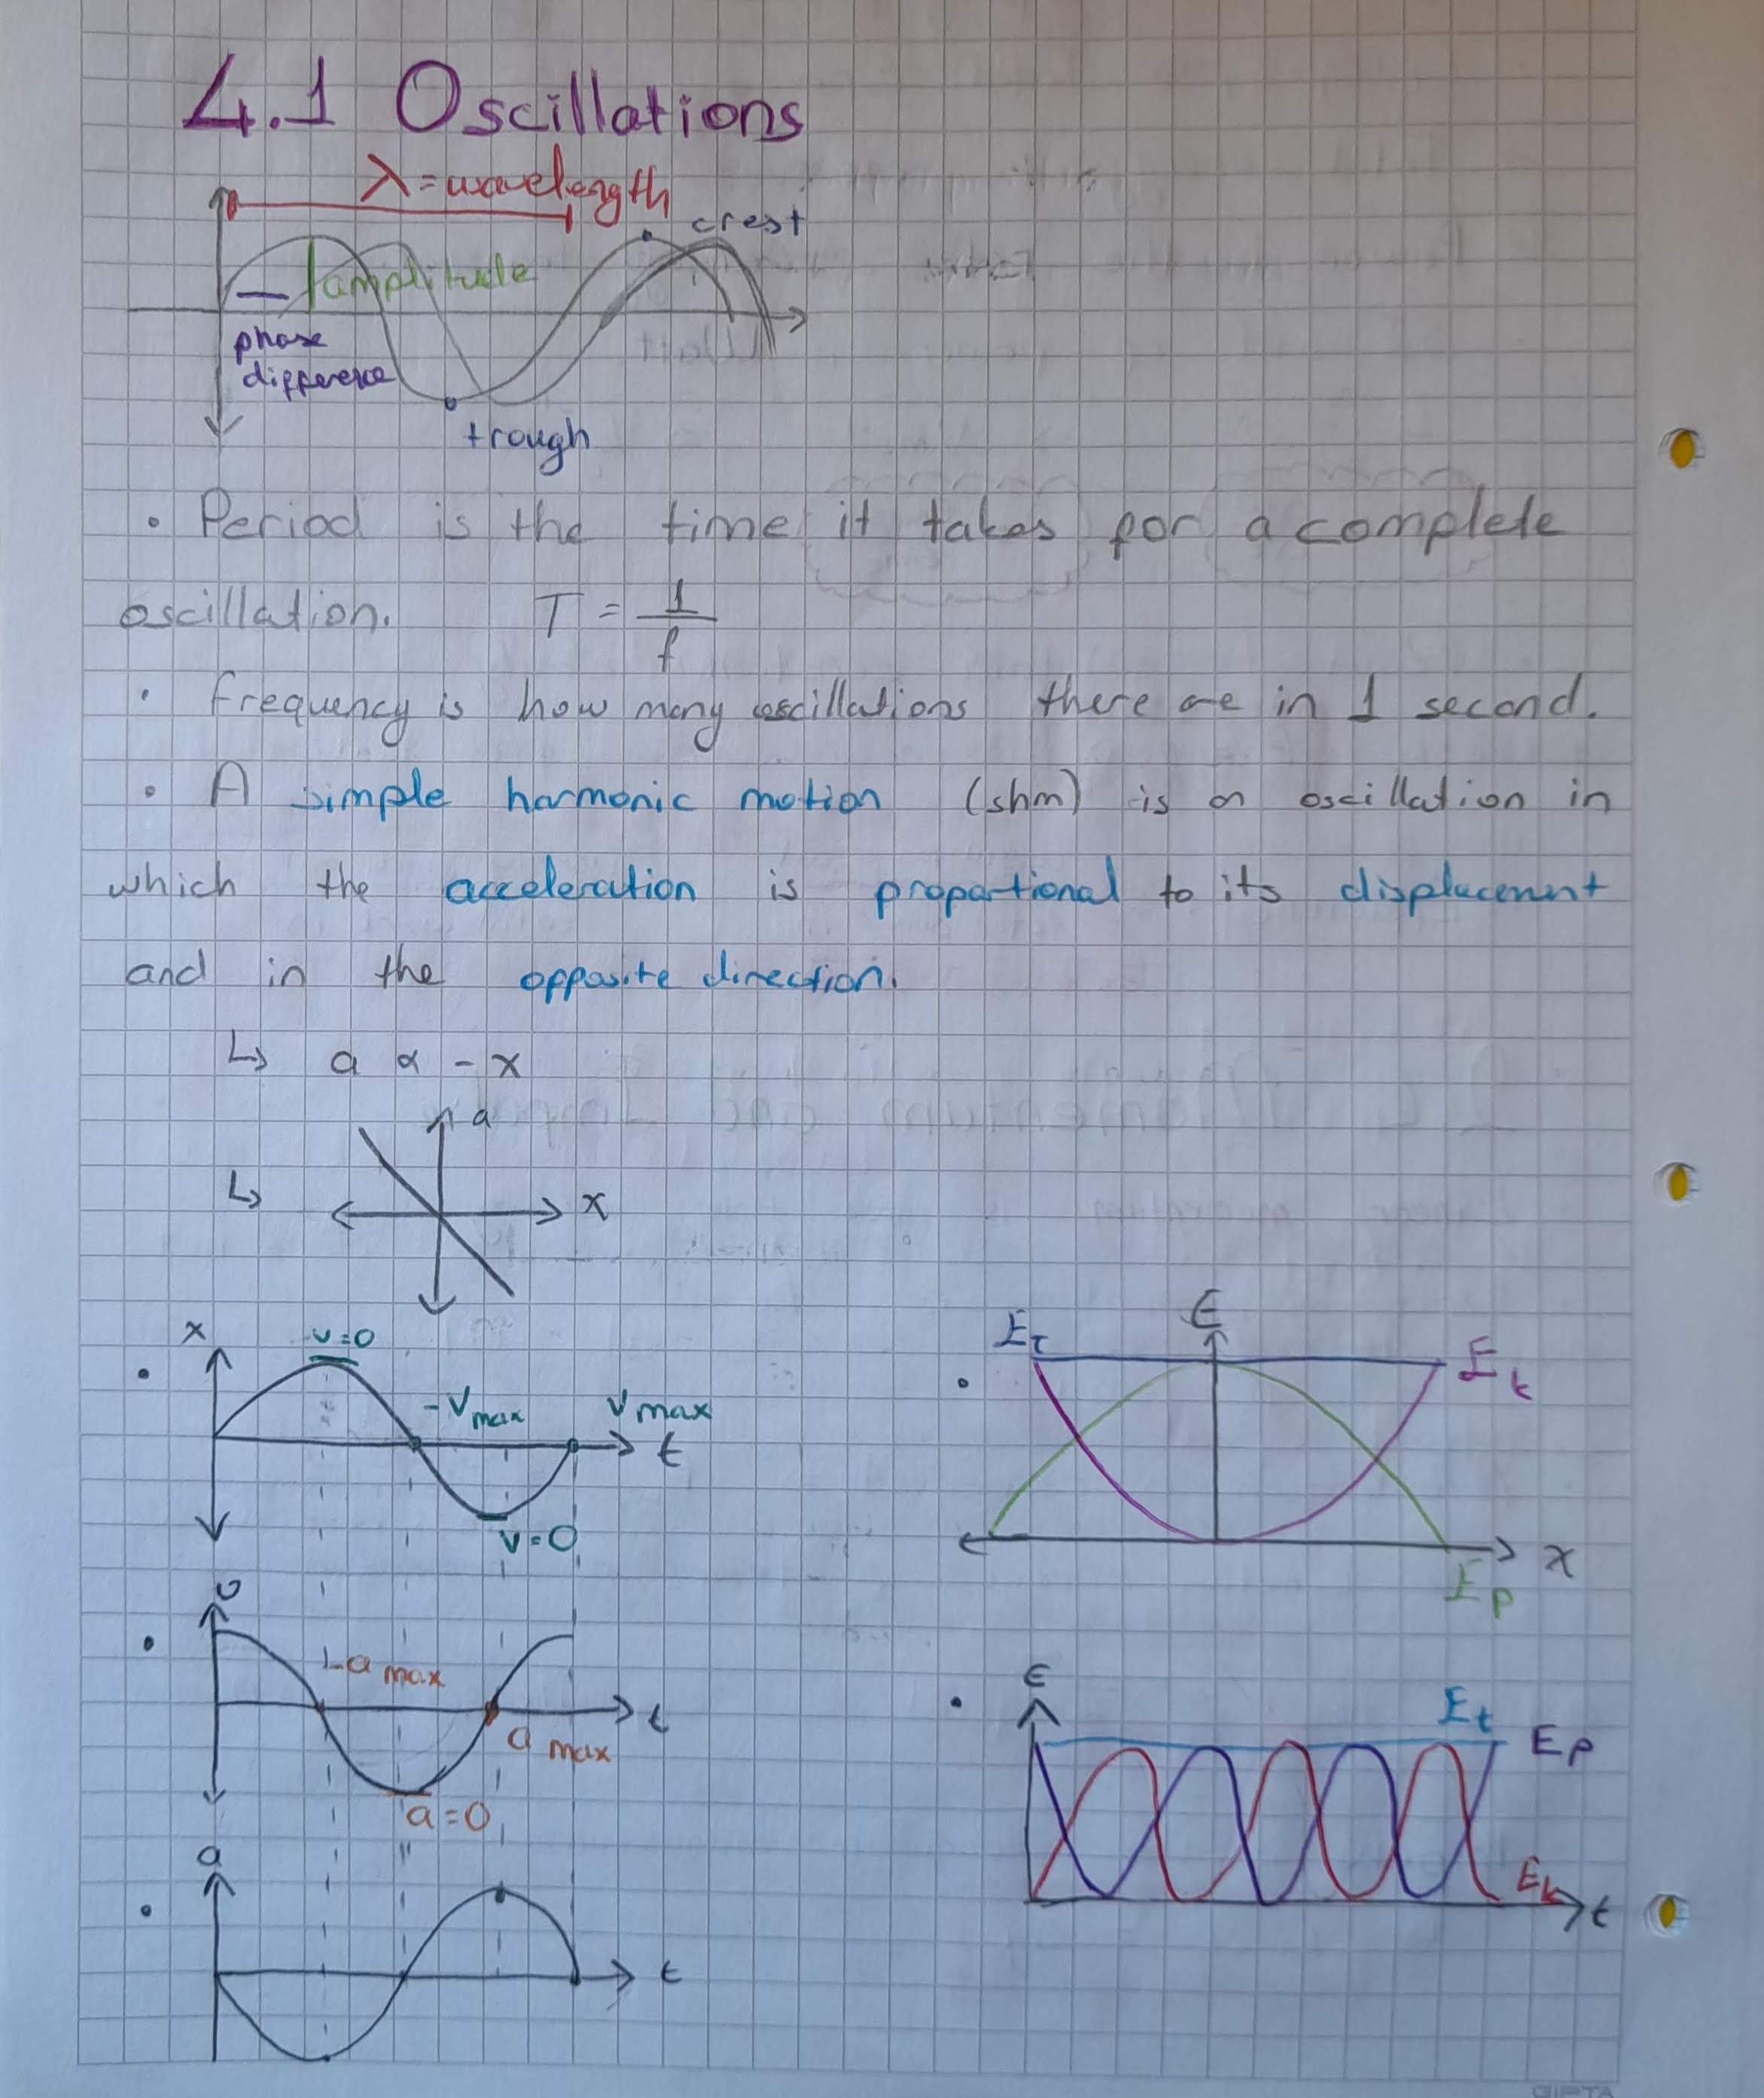 4.1 Oscillations
λ = wavelength
crest
amplitude
phase
difference
trough
• Period is the time it takes for a complete
oscillation. T = 1/f
• Frequency is how many oscillations there are in 1 second.
• A simple harmonic motion (shm) is an oscillation in
which the acceleration is proportional to its displacement
and in the opposite direction.
↳ a α - x
a
↳ x
x
v=0
-Vmax Vmax
t
v=0
v
-a max
t
a max
a=0
a
t
E
ET
Ek
x
Ep
E
Et
Ep
Ek
t